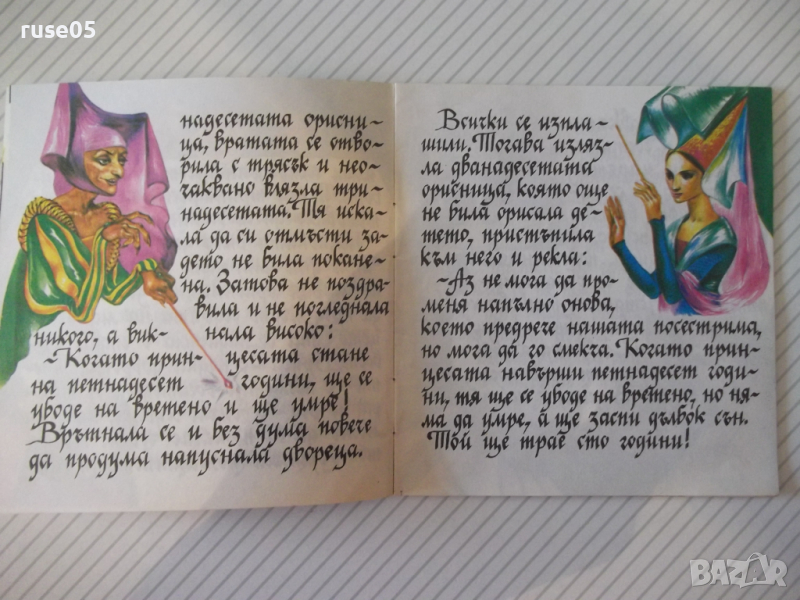 ruse05
надесетата орисни-
ца, вратата се отво-
рила с трясък и нео-
чаквано влязла три-
надесетата. Тя иска-
ла да си отмъсти за-
дето не била покане-
на. Затова не поздра-
вила и не погледнала
никого, а вик- нала високо:
-Когато прин- цесата стане
на петнадесет години, ще се
убоде на вретено и ще умре!
Врътнала се и без дума повече
да продума напуснала двореца.
Всички се изпла-
шили. Тогава изляз-
ла дванадесетата
орисница, която още
не била орисала де-
тето, пристъпила
към него и рекла:
-Аз не мога да про-
меня напълно онова,
което предрече нашата посестрима,
но мога да го смекча. Когато прин-
цесата навърши петнадесет годи-
ни, тя ще се убоде на вретено, но ня-
ма да умре, а ще заспи дълбок сън.
Той ще трае сто години!
BAZAR
bg